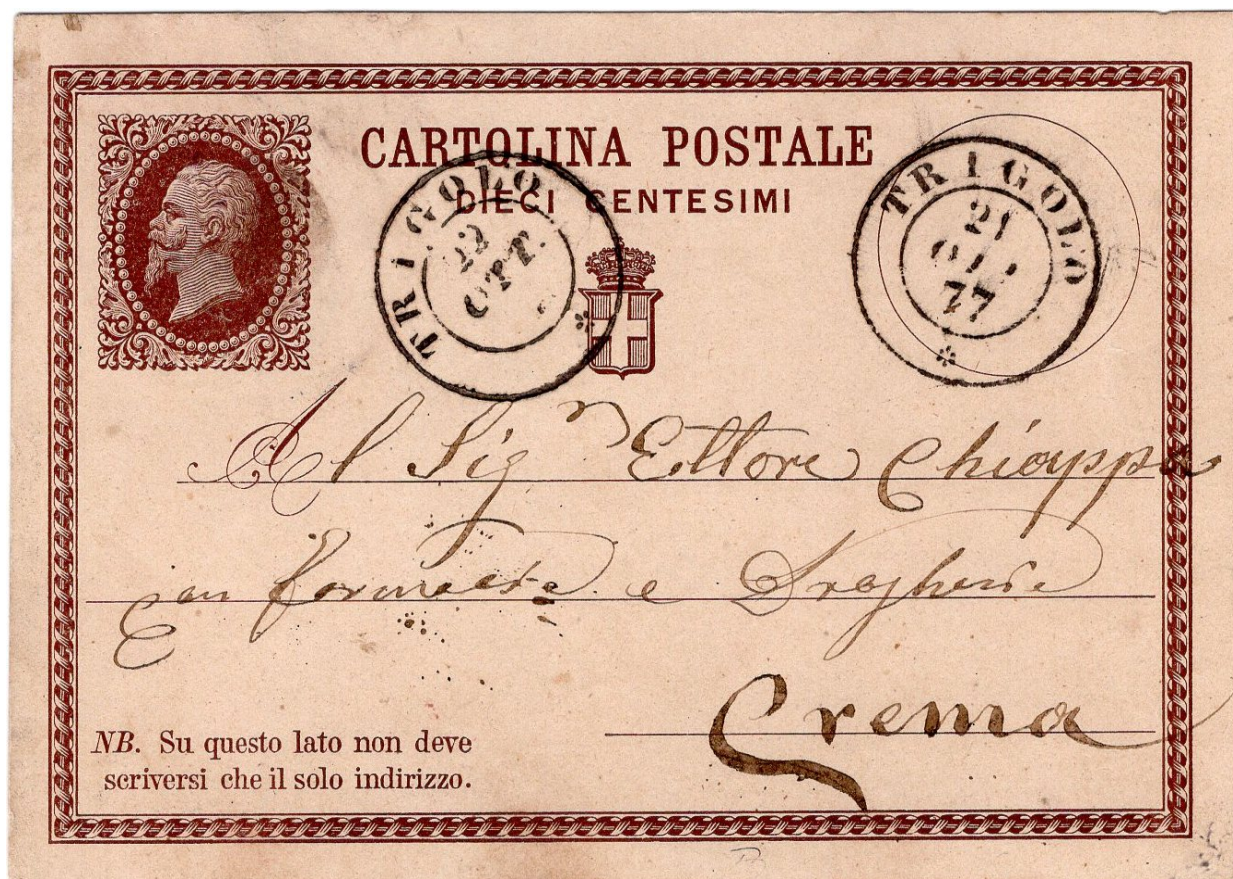 CARTOLINA POSTALE
DIECI CENTESIMI
TRIGOLO
22
OTT.
TRIGOLO
21
OTT.
77
Al Sigr Ettore Chioppa
con farmacia e Drogheria
Crema
NB. Su questo lato non deve
scriversi che il solo indirizzo.